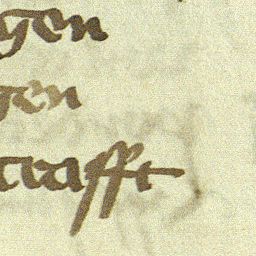 gen
gen
crafft